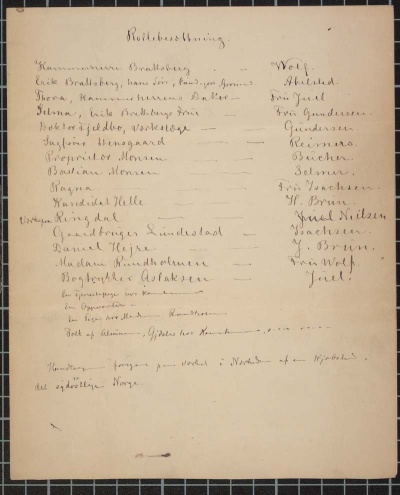 Rollebesættning.
Kammerherre Brattsberg — Wolf.
Erik Brattsberg, hans Sön, Abelsted.
Thora, Kammerherrens Datter — Fru Juel
Selma, Erik Brattsbergs Frue — Fru Gundersen.
Doktor Fjeldbo, Værkslæge — Gundersen
Sagförer Stensgaard — Reimers.
Proprietær Monsen — Bücher.
Bastian Monsen — Selmer.
Ragna — Fru Isachsen.
Kandidat Helle — H. Brun.
Ringdal — Juul Nielsen
Gaardbruger Lundestad — Isachsen.
Daniel Hejre — J. Brun.
Madam Rundholmen — Fru Wolf.
Bogtrykker Aslaksen — Juel.
En Tjenestepige hos
En Opvarter
En Pige hos Madam Rundholmen
Folk af Almuen, Gjæster hos
Handlingen foregaar paa Værket i Nærheden af en Kjøbstad i
det sydöstlige Norge.